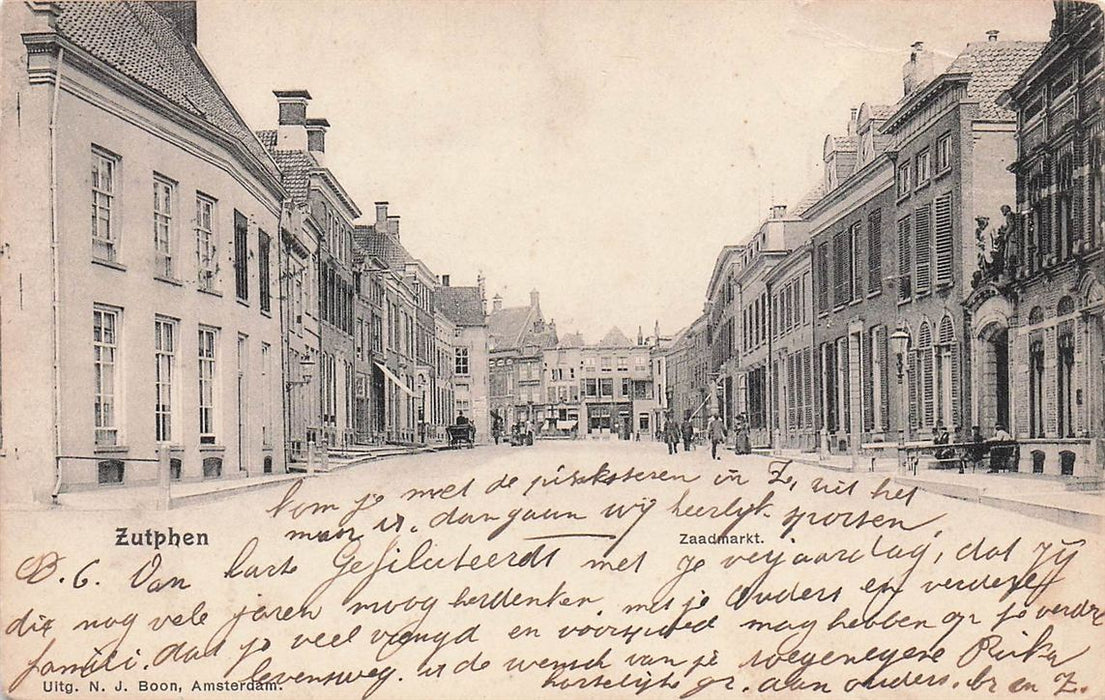 Kom je met de pinksteren in Z, uit het
maar is. dan gaan wij heerlijk sporten
Zutphen
Zaadmarkt.
B. G. Van harte Gefiliciteerdt met je verjaardag, dat zij
dix nog vele jaren moog herdenken. met je Ouders en verdere
familie. dat je veel vreugd en voorspoed mag hebben op je verdre
levensweg. is de wensch van je toegenegene
hartelijke gr. aan ouders. br en Z.
Uitg. N. J. Boon, Amsterdam.